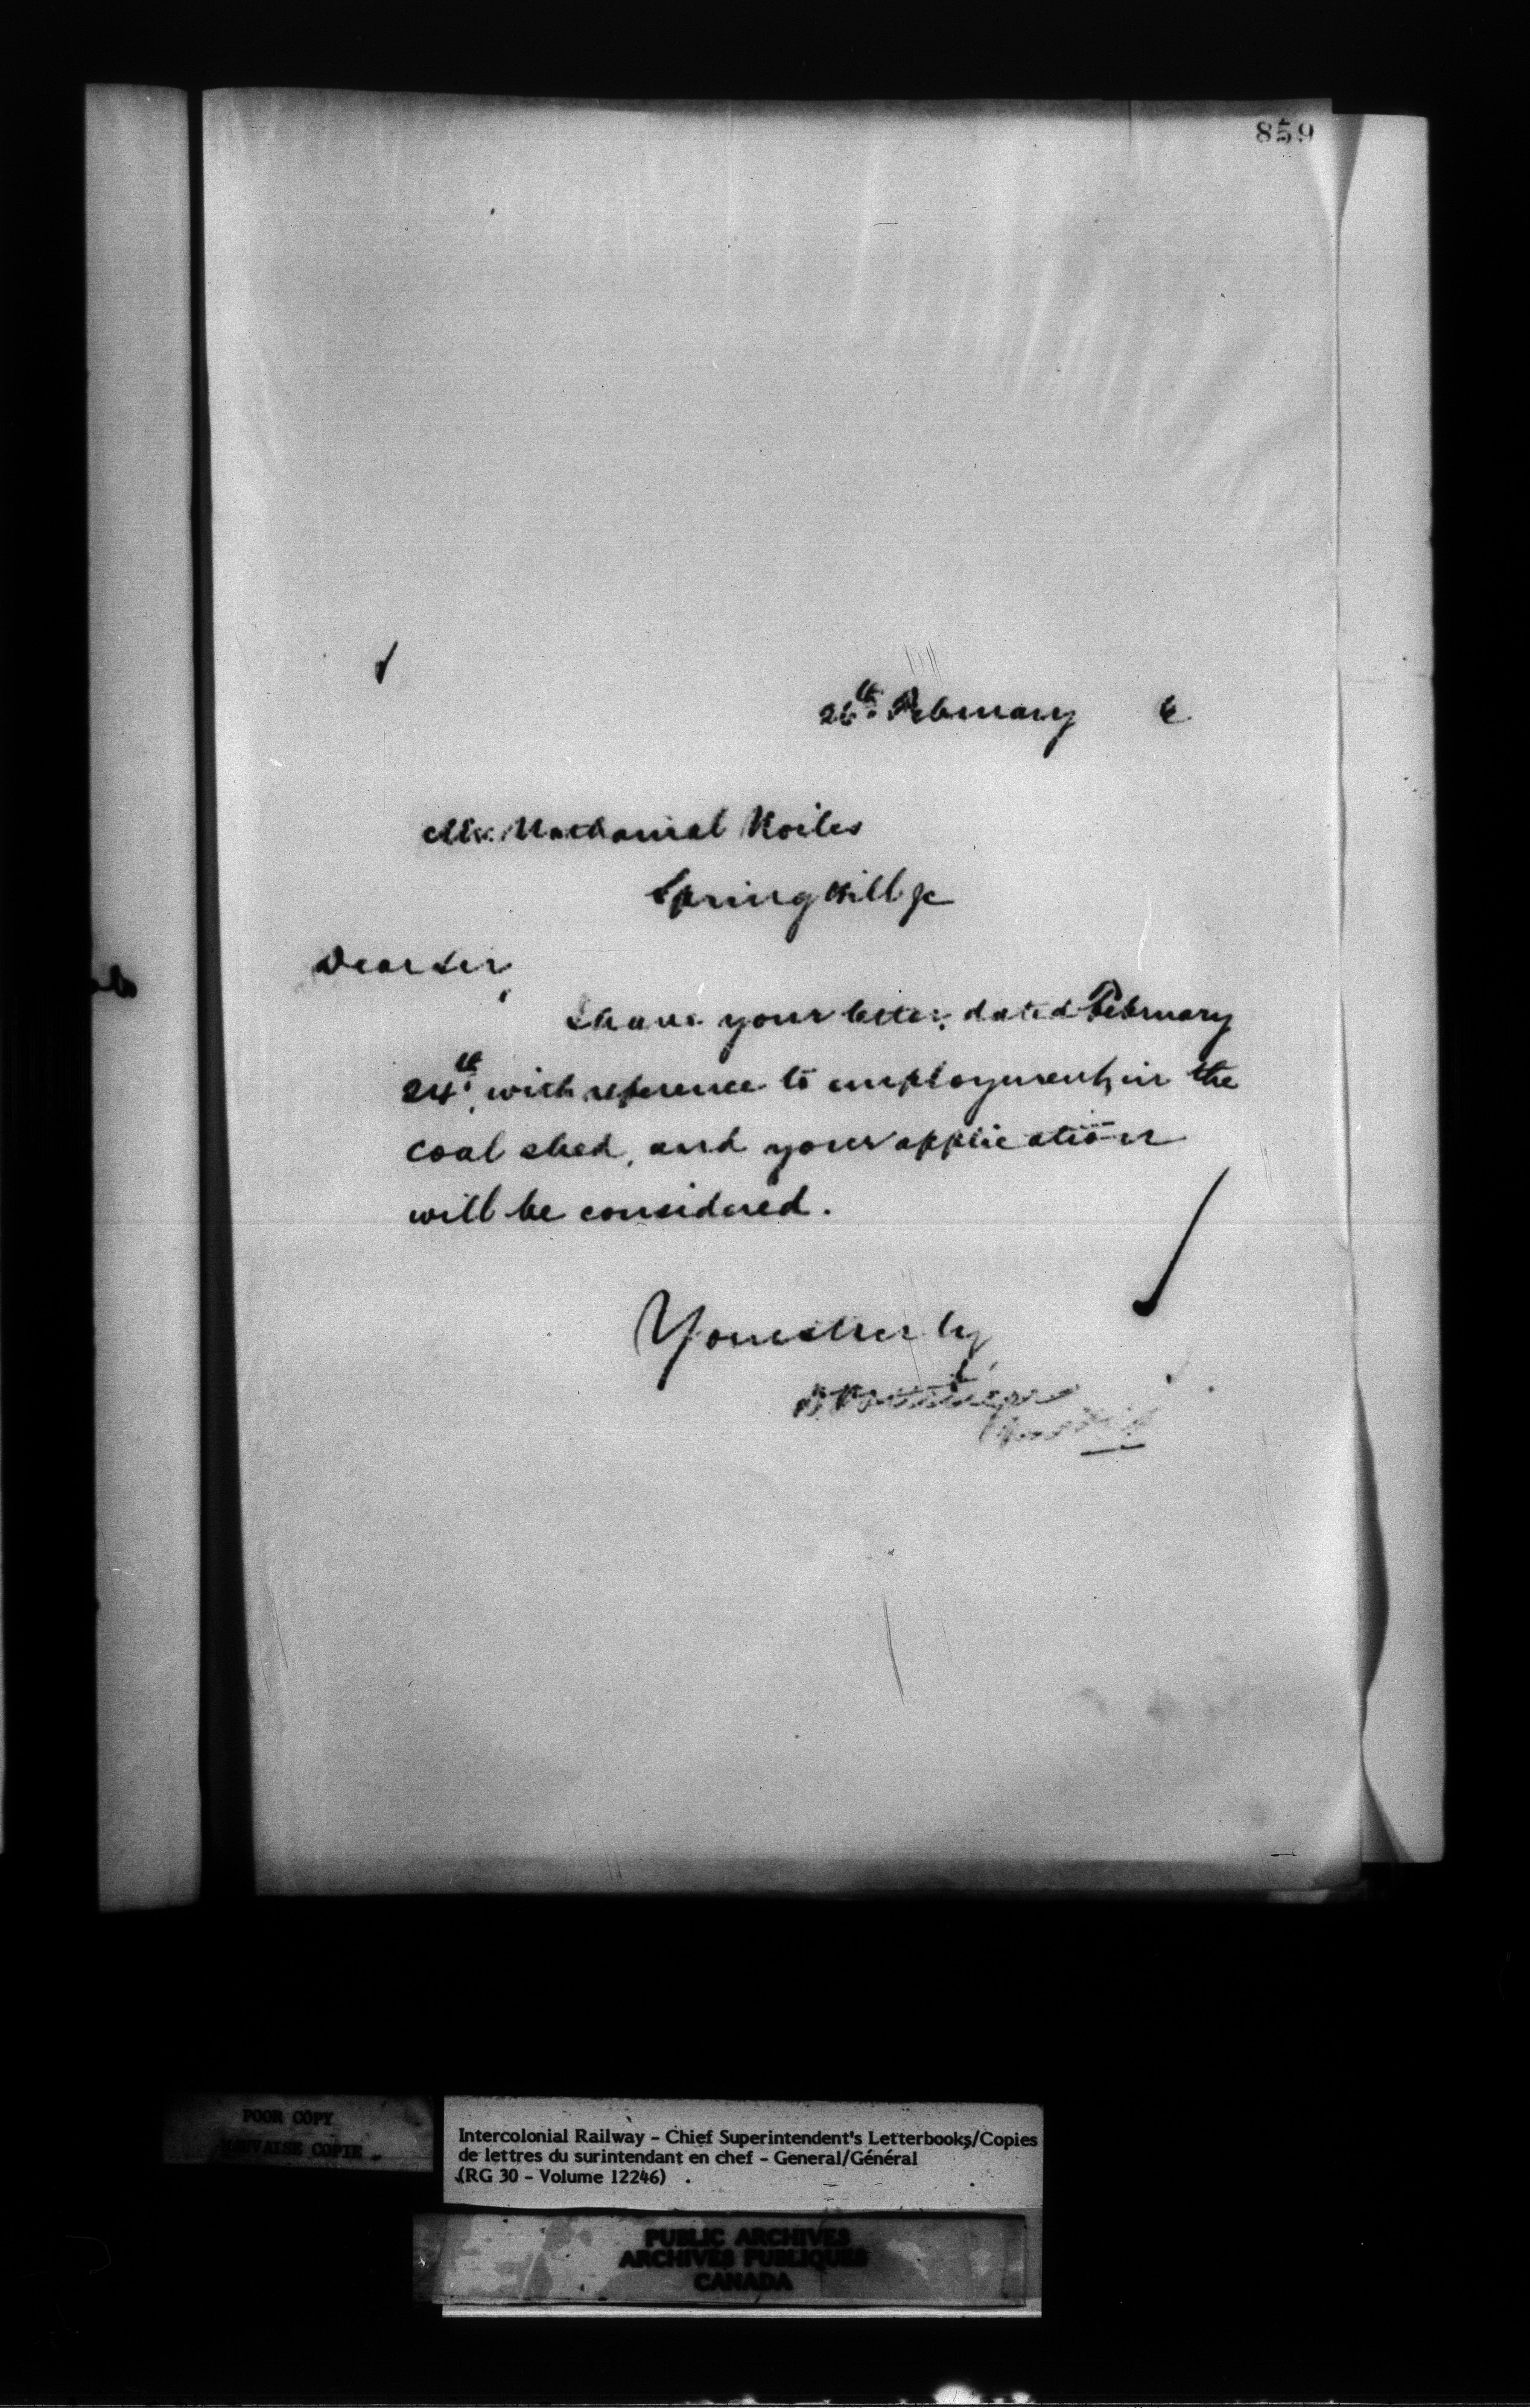 859
26th February 6
Mr. Nathanial Noiles
Spring Hill Jc
Dear Sir,
I have your letter, dated February
24th, with reference to employment, in the
coal shed, and your application
will be considered.
Yours truly
D. Pottinger
POOR COPY
MAUVAISE COPIE
Intercolonial Railway - Chief Superintendent's Letterbooks/Copies
de lettres du surintendant en chef - General/Général
(RG 30 - Volume 12246)
PUBLIC ARCHIVES
ARCHIVES PUBLIQUES
CANADA